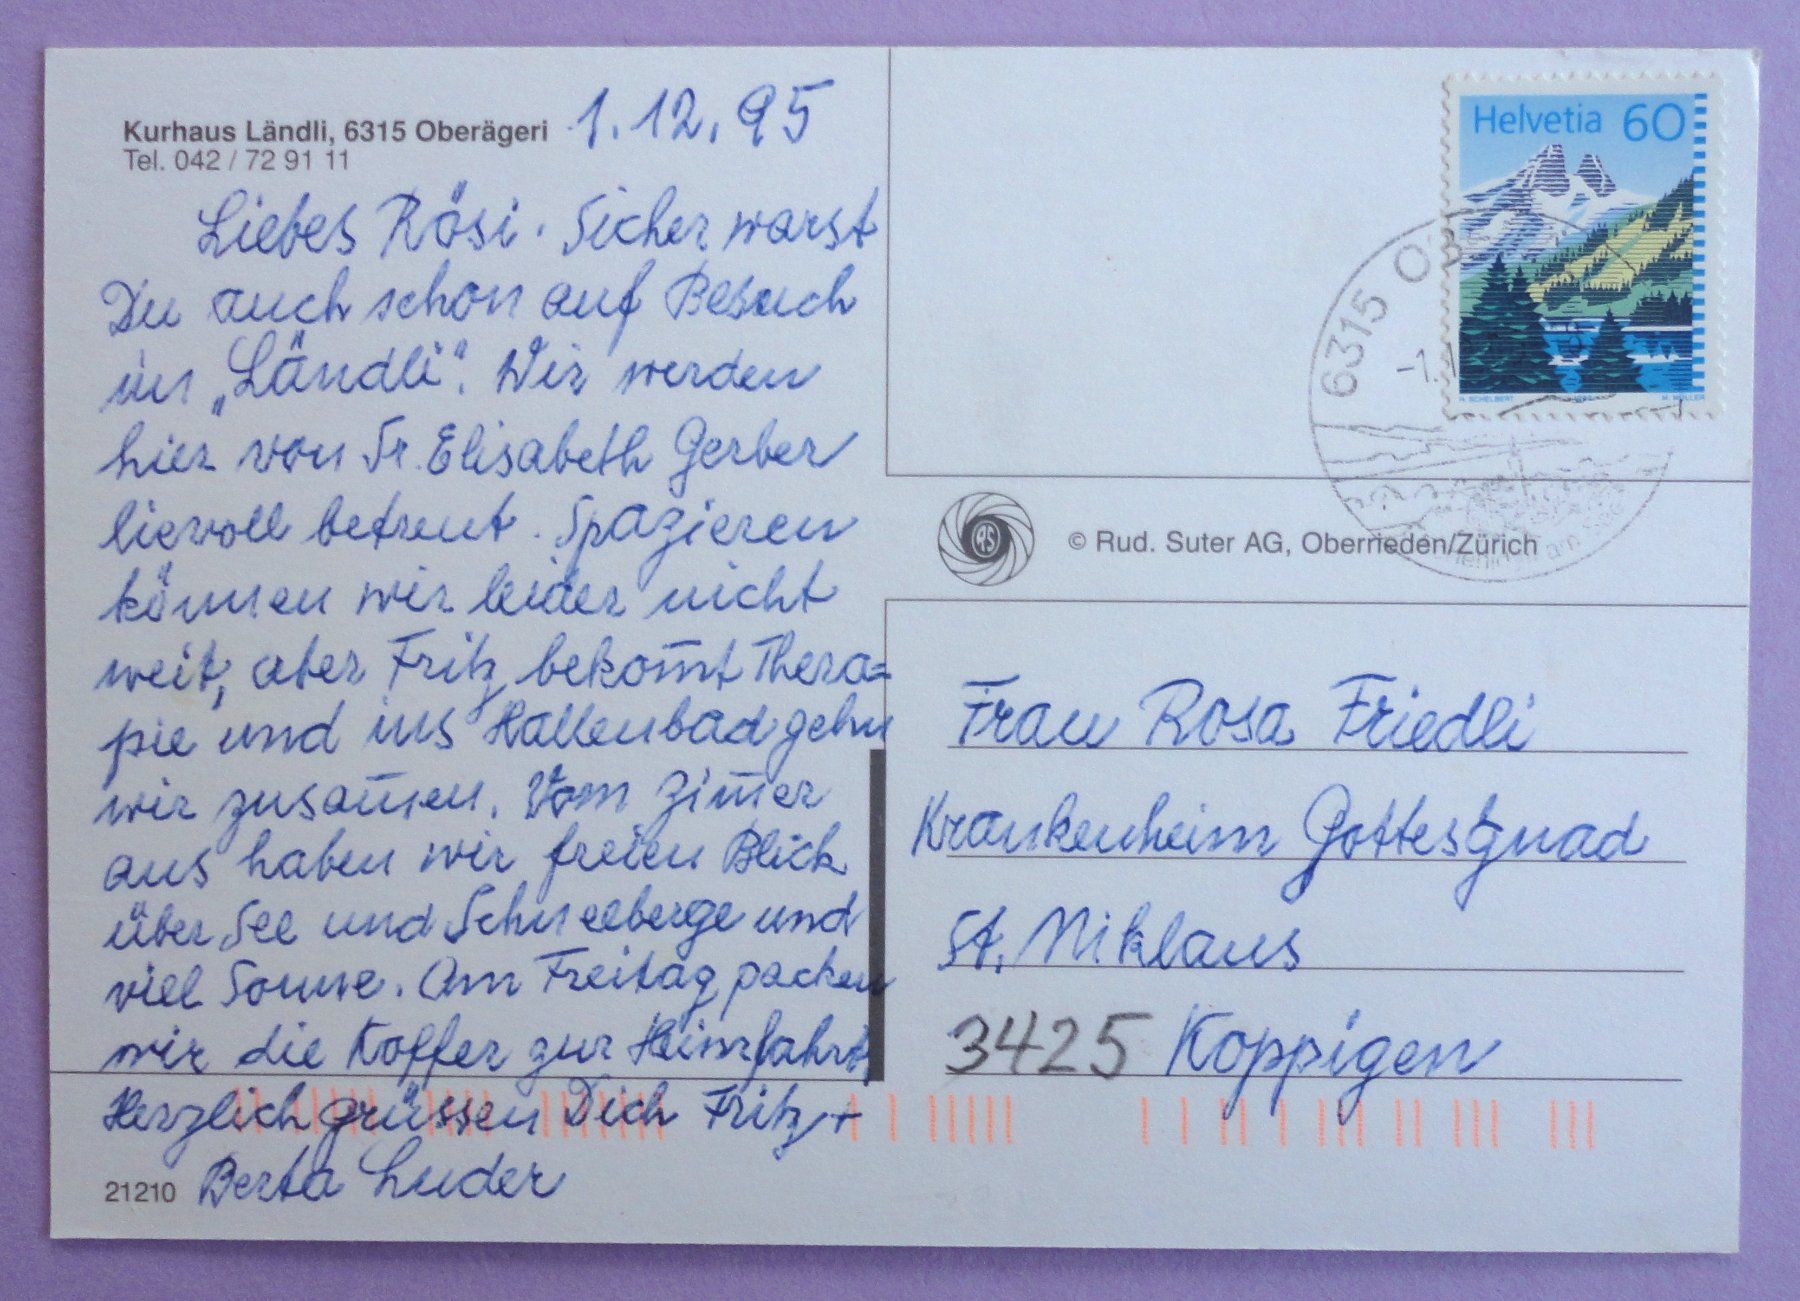 Kurhaus Ländli, 6315 Oberägeri
Tel. 042 / 72 91 11
1.12.95
Liebes Rösi. Sicher warst
Du auch schon auf Besuch
im „Ländli". Wir werden
hier von Sr. Elisabeth Gerber
lievoll betreut. Spazieren
können wir leider nicht
weit, aber Fritz bekom̄t Thera=
pie und ins Hallenbad gehn
wir zusam̄en. Vom Zim̄er
aus haben wir freien Blick
über See und Schneeberge und
viel Sonne. Am Freitag packen
wir die Koffer zur Heimfahrt
Herzlich grüssen Dich Fritz +
Berta Luder
21210
Helvetia 60
H. SCHELBERT
M. MÜLLER
6315 O
-1.1
© Rud. Suter AG, Oberrieden/Zürich
RS
Frau Rosa Friedli
Krankenheim Gottesgnad
St. Niklaus
3425 Koppigen